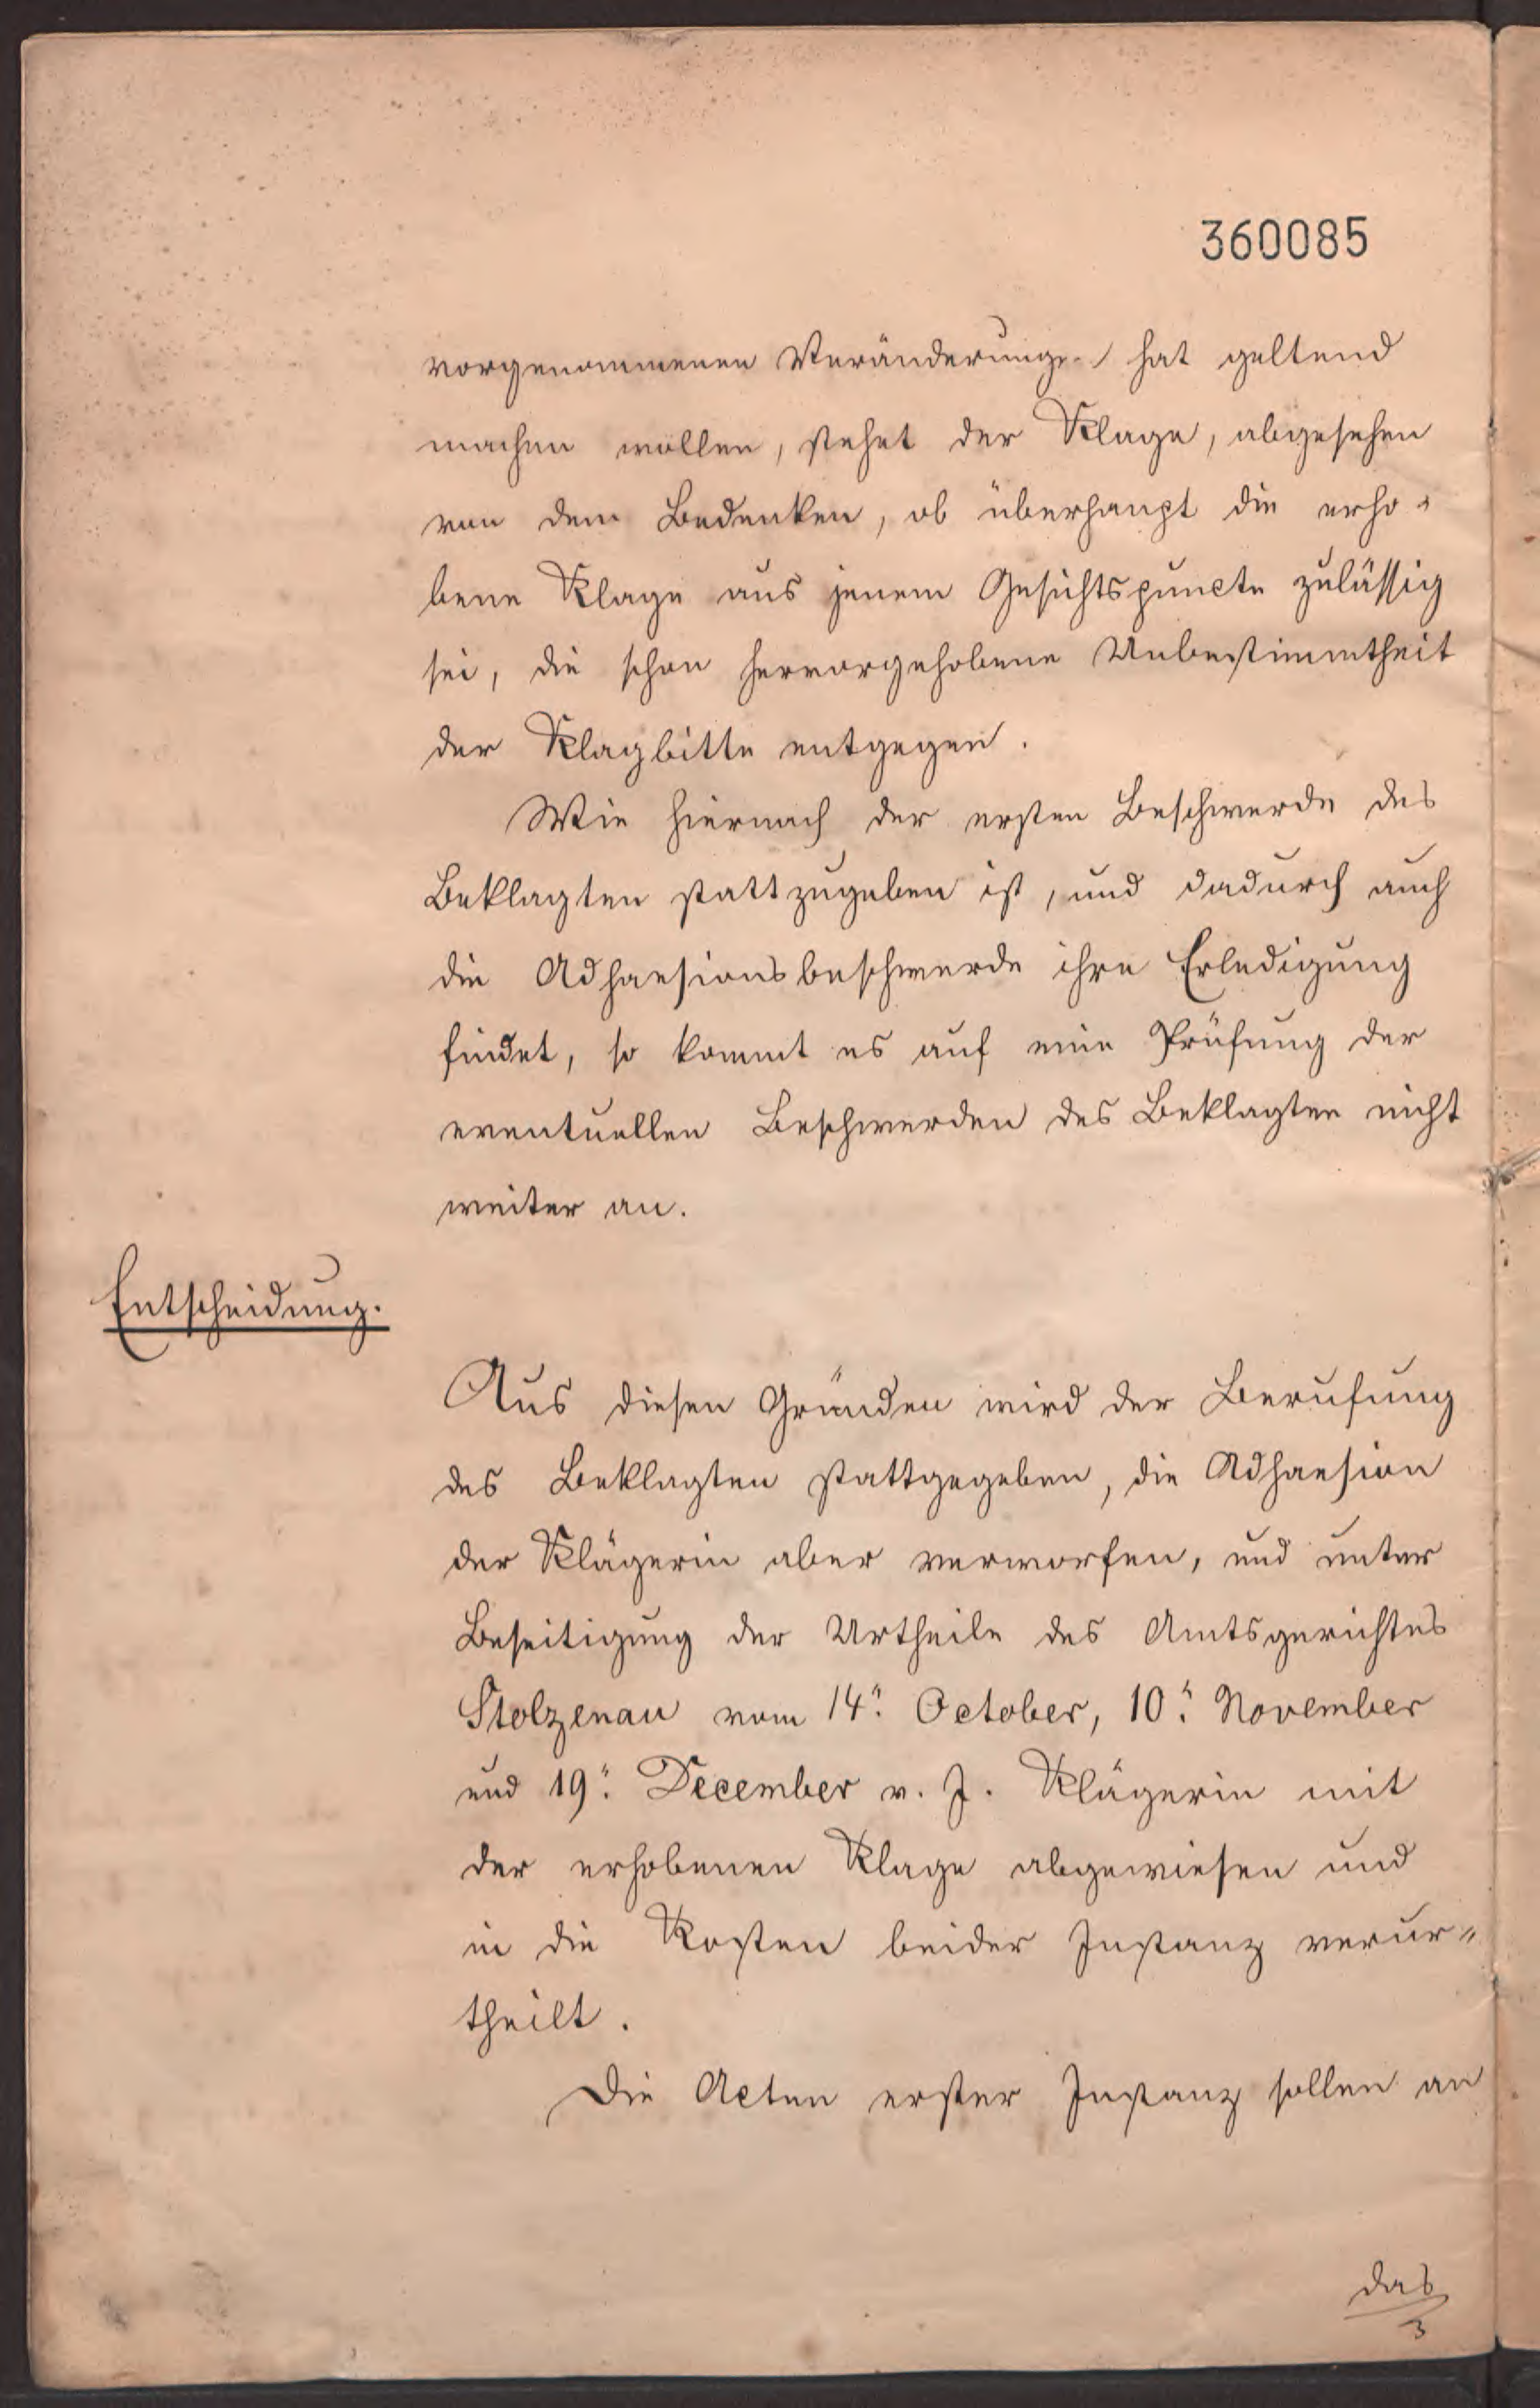 360085
vorgenommenen Veränderungen hat geltend
machen wollen, stehet der Klage, abgesehen
von dem Bedenken, ob überhaupt die erho-
bene Klage aus jenem Gesichtspuncte zulässig
sei, die schon hervorgehobene Unbestimmtheit
der Klagbitte entgegen.
Wie hiernach der ersten Beschwerde des
Beklagten stattzugeben ist, und dadurch auch
die Adhaesionsbeschwerde ihre Erledigung
findet, so kommt es auf eine Prüfung der
eventuellen Beschwerden des Beklagten nicht
weiter an.
Entscheidung.
Aus diesen Gründen wird der Berufung
des Beklagten stattgegeben, die Adhaesion
der Klägerin aber verworfen, und unter
Beseitigung der Urtheile des Amtsgerichtes
Stolzenau vom 14. October, 10. November
und 19. December v. J. Klägerin mit
der erhobenen Klage abgewiesen und
in die Kosten beider Instanz verur-
theilt.
Die Acten erster Instanz sollen an
das
3